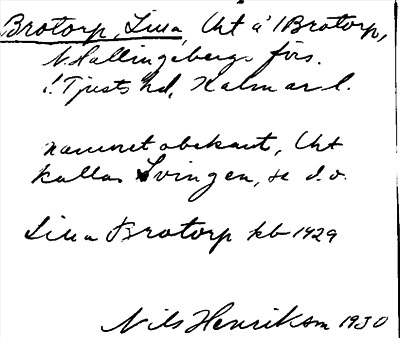 Brotorp, Lilla, Lht å 1 Brotorp,
V. Hallingebergs förs.
i Tjusts hd, Kalmar l.
namnet obekant, Lht
kallas Svingen, se d.o.
Lilla Brotorp kb 1929
Nils Henrikson 1930